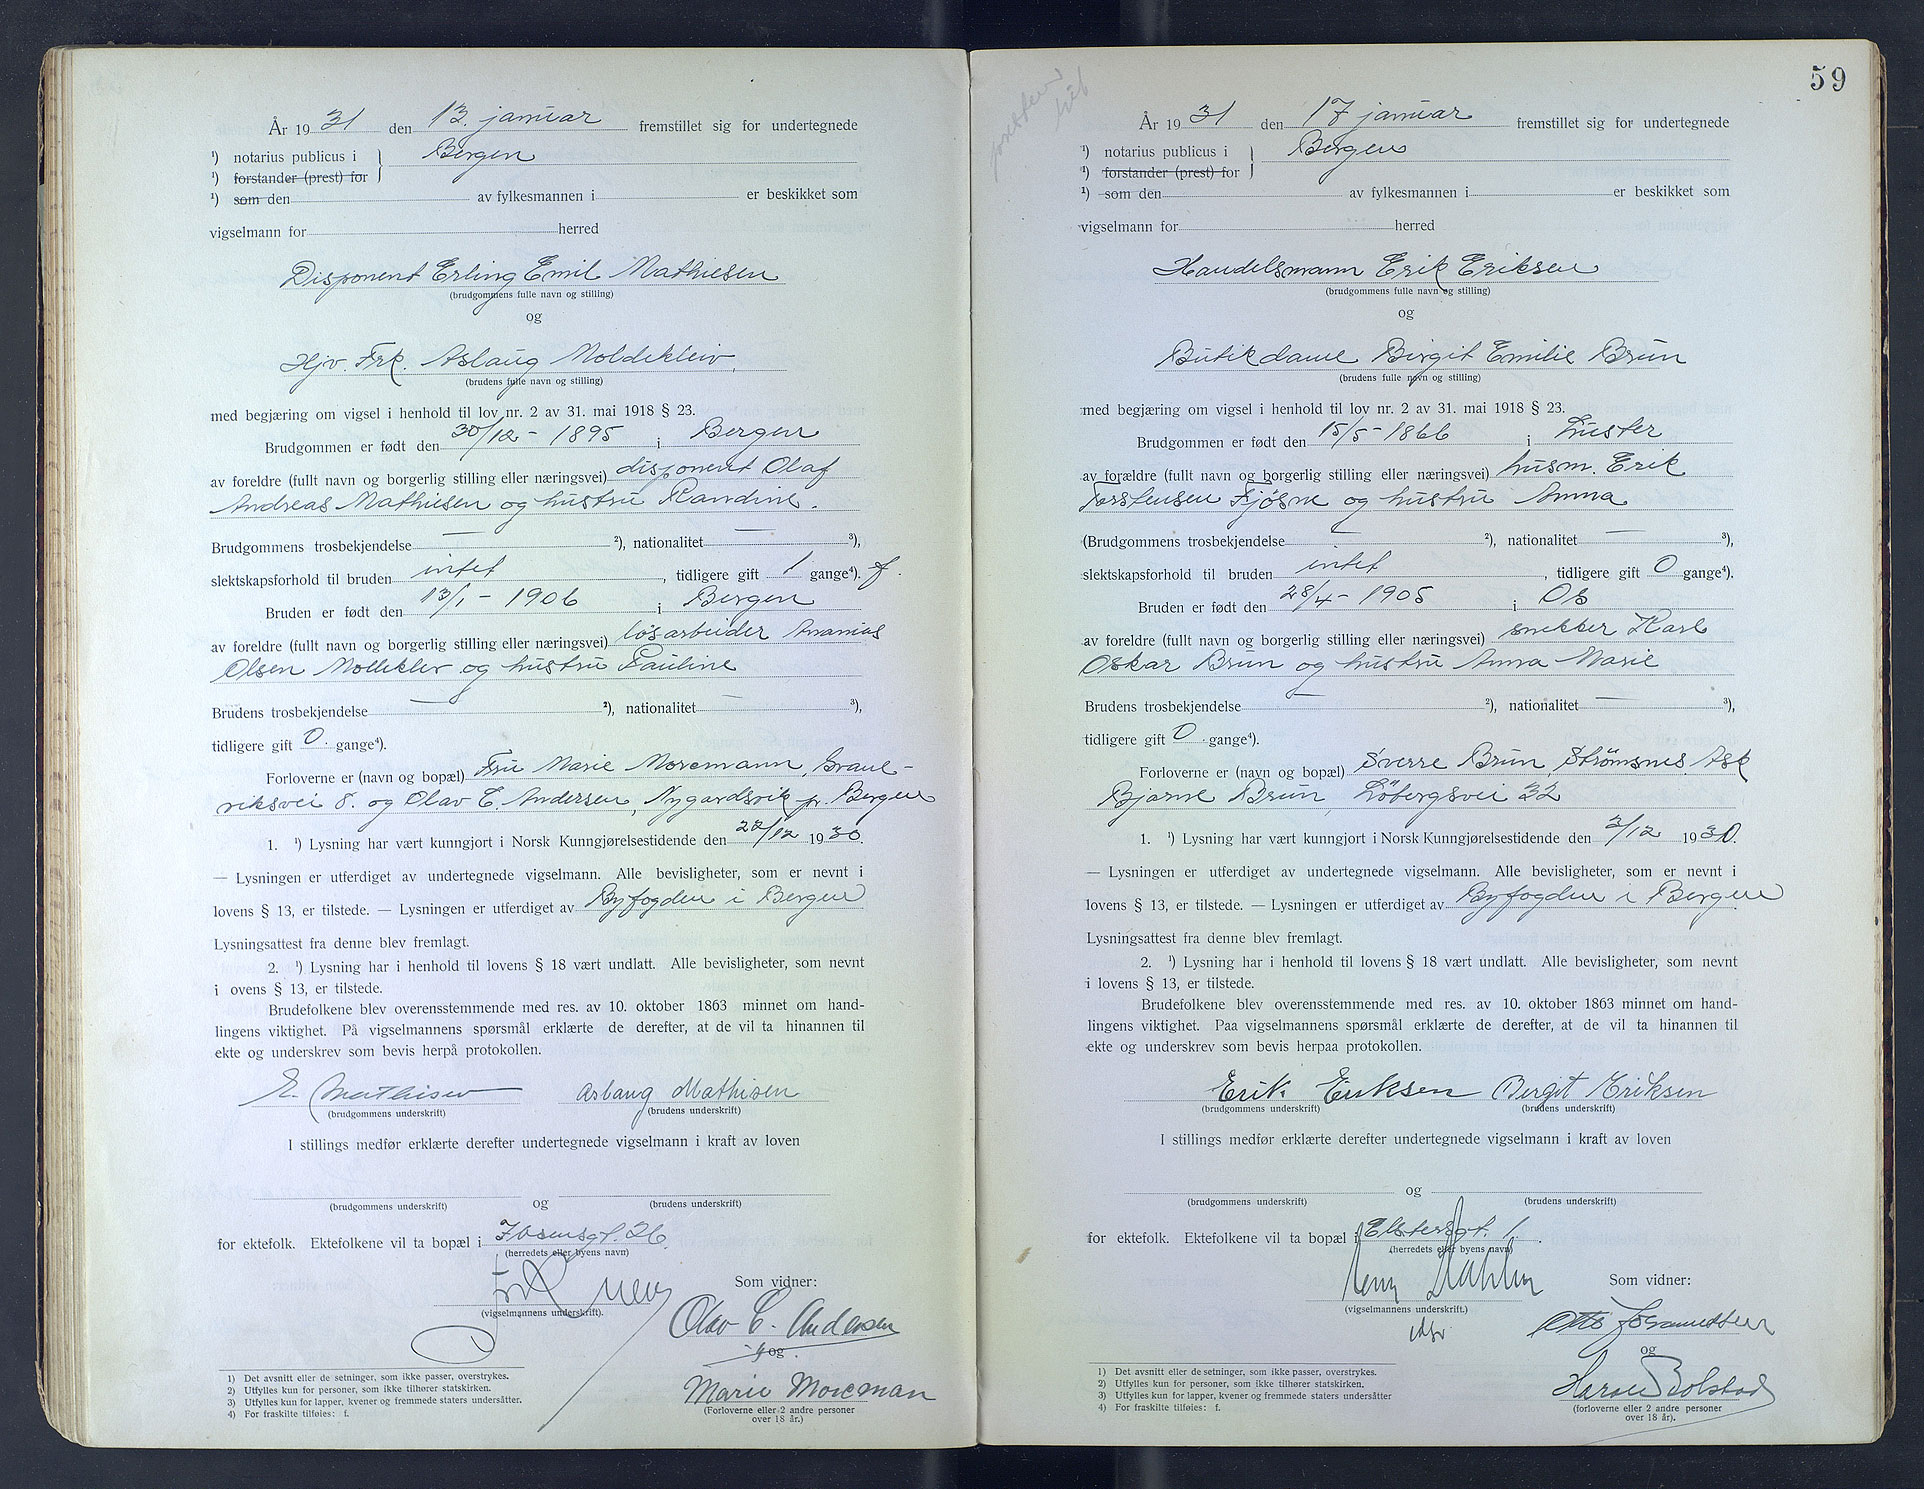 År 1931 den 13. januar fremstillet sig for undertegnede
¹) notarius publicus i } Bergen
¹) forstander (prest) for
¹) som den av fylkesmannen i er beskikket som
vigselmann for herred
Disponent Erling Emil Mathiesen
(brudgommens fulle navn og stilling)
og
Hjv. Frk. Aslaug Moldekleiv.
(brudens fulle navn og stilling)
med begjæring om vigsel i henhold til lov nr. 2 av 31. mai 1918 § 23.
Brudgommen er født den 30/12 - 1895 i Bergen
av foreldre (fullt navn og borgerlig stilling eller næringsvei) disponent Olaf
Andreas Mathiesen og hustru Randine.
Brudgommens trosbekjendelse — ²), nationalitet — ³),
slektskapsforhold til bruden intet, tidligere gift 1 gange⁴). f.
Bruden er født den 13/1 - 1906 i Bergen
av foreldre (fullt navn og borgerlig stilling eller næringsvei) løsarbeider Ananias
Olsen Molleklev og hustru Pauline
Brudens trosbekjendelse — ²), nationalitet — ³),
tidligere gift 0. gange⁴).
Forloverne er (navn og bopæl) Fru Marie Moremann,
8. og Olav C. Andersen, Nygårdsvik pr. Bergen
1. ¹) Lysning har vært kunngjort i Norsk Kunngjørelsestidende den 22/12 1930.
— Lysningen er utferdiget av undertegnede vigselmann. Alle bevisligheter, som er nevnt i
lovens § 13, er tilstede. — Lysningen er utferdiget av Byfogden i Bergen
Lysningsattest fra denne blev fremlagt.
2. ¹) Lysning har i henhold til lovens § 18 vært undlatt. Alle bevisligheter, som nevnt
i ovens § 13, er tilstede.
Brudefolkene blev overensstemmende med res. av 10. oktober 1863 minnet om hand-
lingens viktighet. På vigselmannens spørsmål erklærte de derefter, at de vil ta hinannen til
ekte og underskrev som bevis herpå protokollen.
E. Mathisen Aslaug Mathisen
(brudgommens underskrift) (brudens underskrift)
I stillings medfør erklærte derefter undertegnede vigselmann i kraft av loven
og
(brudgommens underskrift) (brudens underskrift)
for ektefolk. Ektefolkene vil ta bopæl i Ibsensgt. 26.
(herredets eller byens navn)
Som vidner:
(vigselmannens underskrift).
Olav C. Andersen
og
Marie Moreman
(Forloverne eller 2 andre personer
over 18 år.)
1) Det avsnitt eller de setninger, som ikke passer, overstrykes.
2) Utfylles kun for personer, som ikke tilhører statskirken.
3) Utfylles kun for lapper, kvener og fremmede staters undersåtter.
4) For fraskilte tilføies: f.
59
År 1931 den 17 januar fremstillet sig for undertegnede
¹) notarius publicus i } Bergen
¹) forstander (prest) for
¹) som den av fylkesmannen i er beskikket som
vigselmann for herred
Handelsmann Erik Eriksen
(brudgommens fulle navn og stilling)
og
Butikdame Birgit Emilie Brun
(brudens fulle navn og stilling)
med begjæring om vigsel i henhold til lov nr. 2 av 31. mai 1918 § 23.
Brudgommen er født den 15/5 - 1866 i Luster
av forældre (fullt navn og borgerlig stilling eller næringsvei) husm. Erik
Torstensen Fjøsne og hustru Anna
(Brudgommens trosbekjendelse — ²), nationalitet — ³),
slektskapsforhold til bruden intet, tidligere gift 0 gange⁴).
Bruden er født den 28/4 - 1905 i Os
av foreldre (fullt navn og borgerlig stilling eller næringsvei) snekker Karl
Oskar Brun og hustru Anna Marie
Brudens trosbekjendelse — ²), nationalitet — ³),
tidligere gift 0 gange⁴).
Forloverne er (navn og bopæl) Sverre Brun, Strømsnes, Ask
Bjarne Brun, Løbergsvei 32
1. ¹) Lysning har vært kunngjort i Norsk Kunngjørelsestidende den 2/12 1930.
— Lysningen er utferdiget av undertegnede vigselmann. Alle bevisligheter, som er nevnt i
lovens § 13, er tilstede. — Lysningen er utferdiget av Byfogden i Bergen
Lysningsattest fra denne blev fremlagt.
2. ¹) Lysning har i henhold til lovens § 18 vært undlatt. Alle bevisligheter, som nevnt
i lovens § 13, er tilstede.
Brudefolkene blev overensstemmende med res. av 10. oktober 1863 minnet om hand-
lingens viktighet. Paa vigselmannens spørsmål erklærte de derefter, at de vil ta hinannen til
ekte og underskrev som bevis herpaa protokollen.
Erik Eriksen Birgit Eriksen
(brudgommens underskrift) (brudens underskrift)
I stillings medfør erklærte derefter undertegnede vigselmann i kraft av loven
og
(brudgommens underskrift) (brudens underskrift)
for ektefolk. Ektefolkene vil ta bopæl i Elstersgt. 1.
(herredets eller byens navn)
Som vidner:
(vigselmannens underskrift.)
Otto Johannessen
og
Harald Bolstad
(forloverne eller 2 andre personer
over 18 år).
1) Det avsnitt eller de setninger, som ikke passer, overstrykes.
2) Utfylles kun for personer, som ikke tilhører statskirken.
3) Utfylles kun for lapper, kvener og fremmede staters undersåtter
4) For fraskilte tilføies: f.